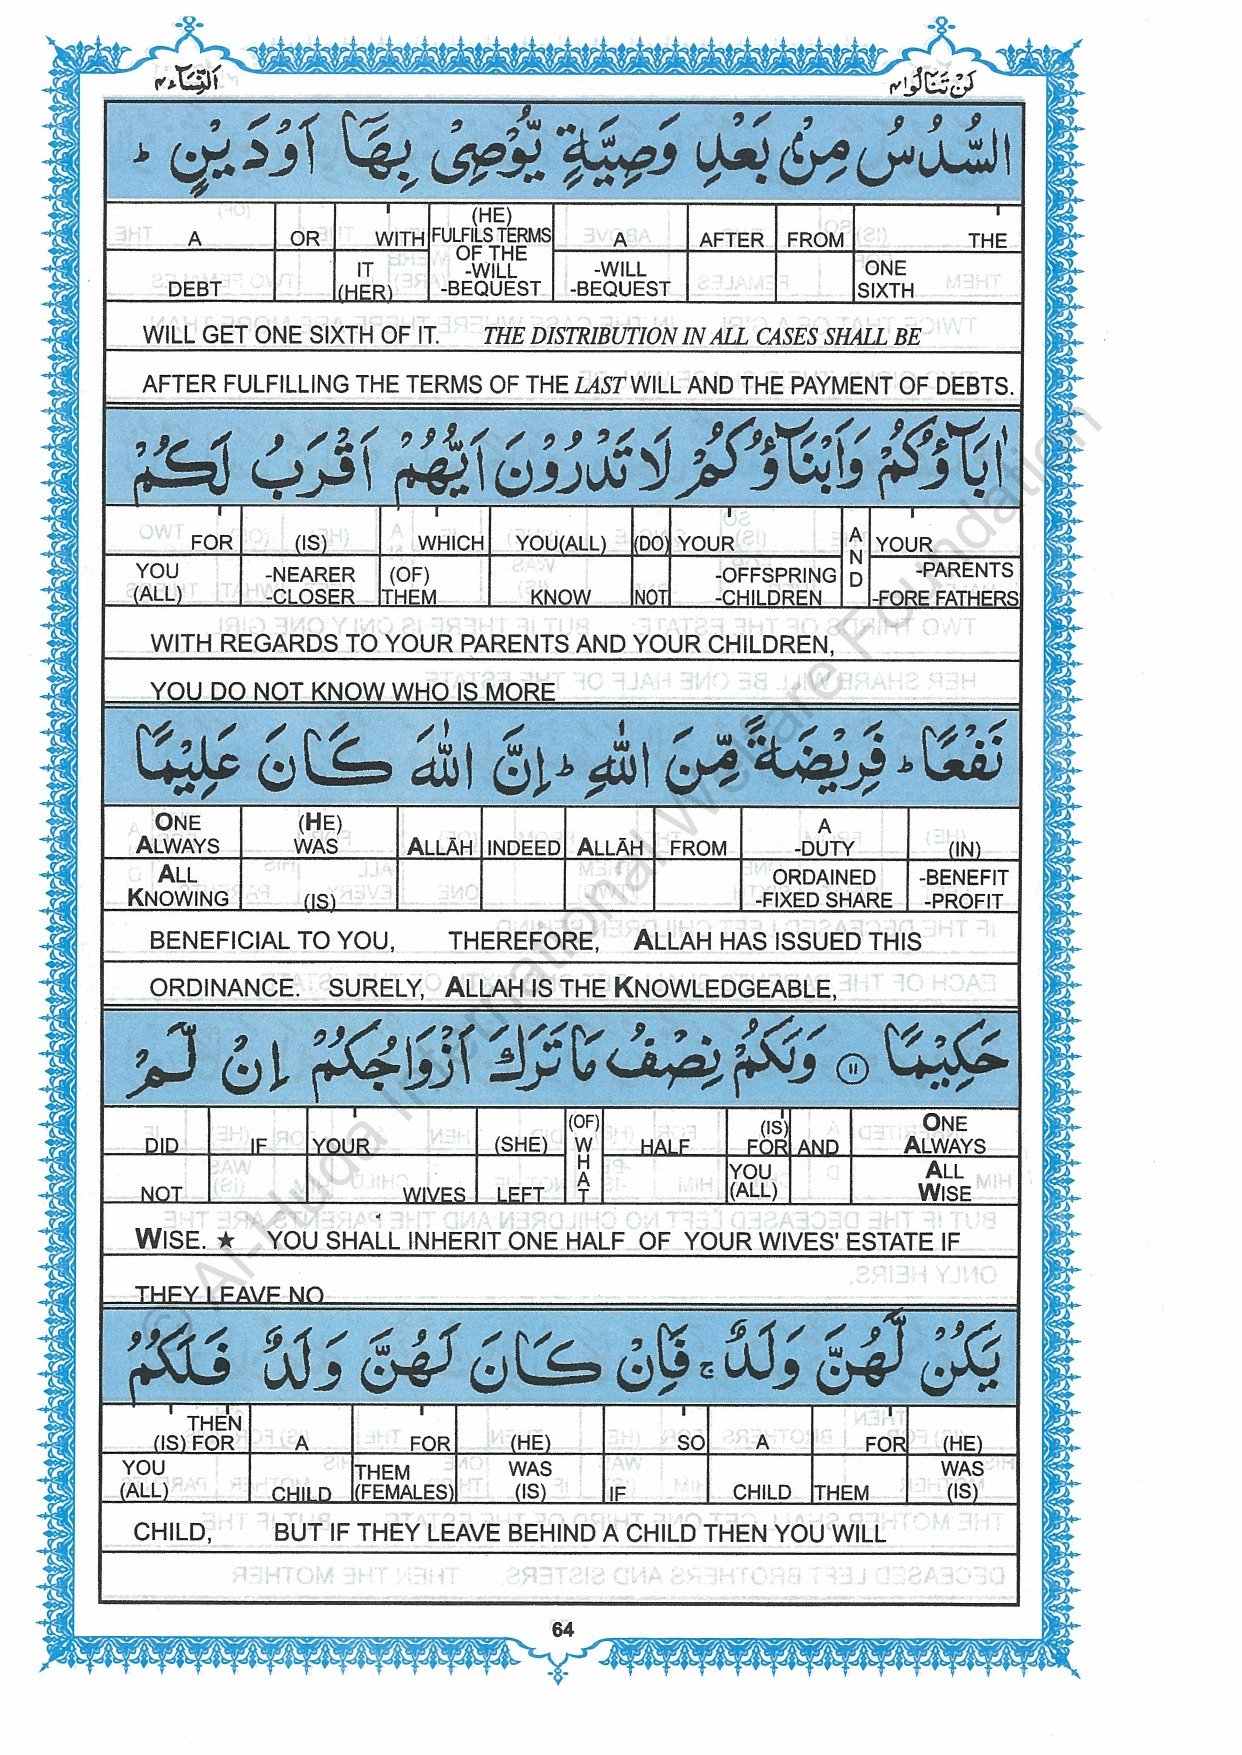 النِّسَآء ٤ لَنْ تَنَالُوا ٤
السُّدُسُ مِنْۢ بَعْدِ وَصِيَّةٍ يُّوْصِىْ بِهَآ اَوْ دَيْنٍ ؕ
A OR WITH (HE) FULFILS TERMS A AFTER FROM THE
DEBT IT (HER) OF THE -WILL -BEQUEST -WILL -BEQUEST ONE SIXTH
WILL GET ONE SIXTH OF IT. THE DISTRIBUTION IN ALL CASES SHALL BE
AFTER FULFILLING THE TERMS OF THE LAST WILL AND THE PAYMENT OF DEBTS.
اٰبَآؤُكُمْ وَاَبْنَآؤُكُمْ لَا تَدْرُوْنَ اَيُّهُمْ اَقْرَبُ لَكُمْ
FOR (IS) WHICH YOU(ALL) (DO) YOUR AND YOUR
YOU (ALL) -NEARER -CLOSER (OF) THEM KNOW NOT -OFFSPRING -CHILDREN -PARENTS -FORE FATHERS
WITH REGARDS TO YOUR PARENTS AND YOUR CHILDREN,
YOU DO NOT KNOW WHO IS MORE
نَفْعًا ؕ فَرِيْضَةً مِّنَ اللّٰهِ ؕ اِنَّ اللّٰهَ كَانَ عَلِيْمًا
ONE ALWAYS (HE) WAS ALLĀH INDEED ALLĀH FROM A -DUTY (IN)
ALL KNOWING (IS) ORDAINED -FIXED SHARE -BENEFIT -PROFIT
BENEFICIAL TO YOU, THEREFORE, ALLAH HAS ISSUED THIS
ORDINANCE. SURELY, ALLAH IS THE KNOWLEDGEABLE,
حَكِيْمًا ١١ وَلَكُمْ نِصْفُ مَا تَرَكَ اَزْوَاجُكُمْ اِنْ لَّمْ
DID IF YOUR (SHE) (OF) WHAT HALF (IS) FOR AND ONE ALWAYS
NOT WIVES LEFT YOU (ALL) ALL WISE
WISE. ★ YOU SHALL INHERIT ONE HALF OF YOUR WIVES' ESTATE IF
THEY LEAVE NO
يَكُنْ لَّهُنَّ وَلَدٌ ۚ فَاِنْ كَانَ لَهُنَّ وَلَدٌ فَلَكُمُ
THEN (IS) FOR A FOR (HE) SO A FOR (HE)
YOU (ALL) CHILD THEM (FEMALES) WAS (IS) IF CHILD THEM WAS (IS)
CHILD, BUT IF THEY LEAVE BEHIND A CHILD THEN YOU WILL
64
© Al-Huda International Welfare Foundation